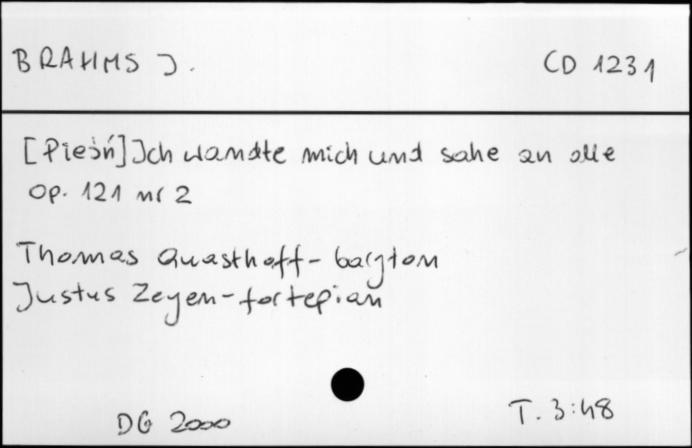 BRAHMS J. CD 1231
[Pieśń] Ich wandte mich und sahe an alle
op. 121 nr 2
Thomas Quasthoff - baryton
Justus Zeyen - fortepian
DG 2000 T. 3:48